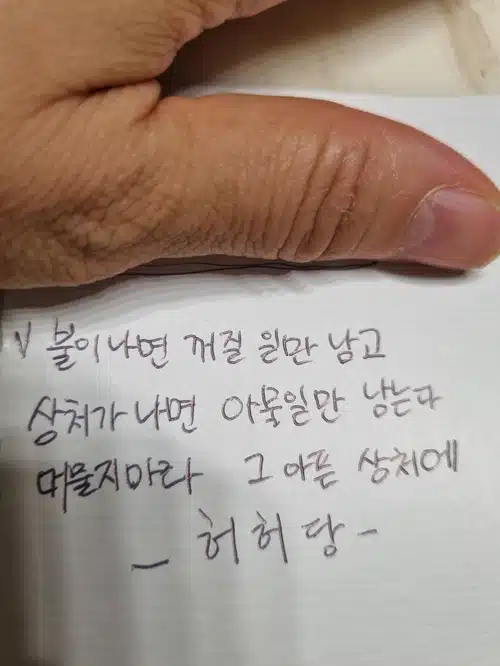 V 불이나면 꺼질 일만 남고
상처가 나면 아물일만 남는다
머물지마라 그 아픈 상처에
- 허허당 -